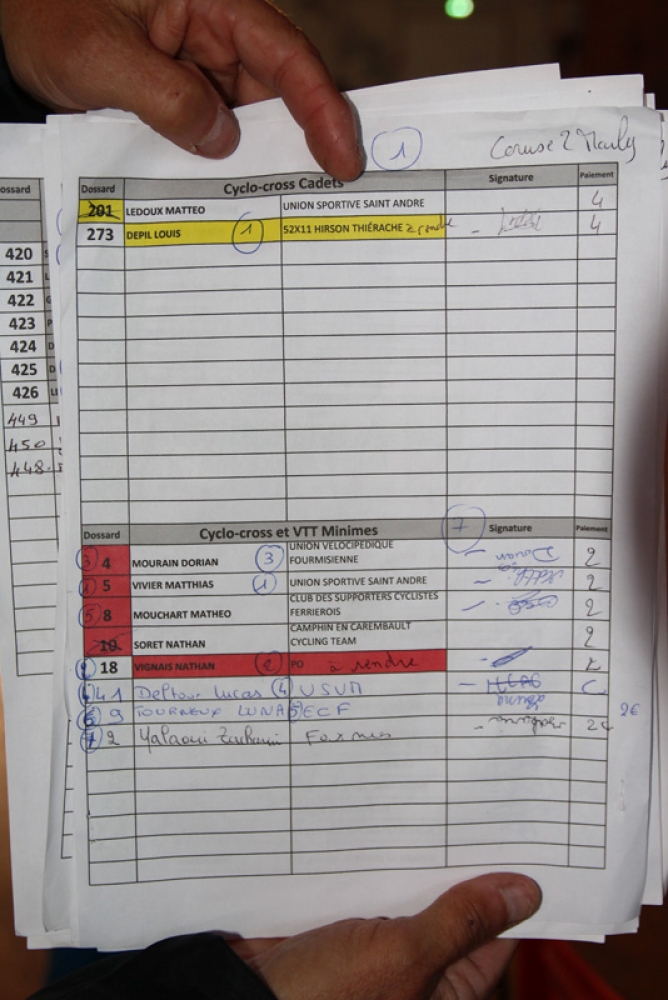 1
Dossard Cyclo-cross Cadets Signature Paiement
201 LEDOUX MATTEO UNION SPORTIVE SAINT ANDRE 4
273 DEPIL LOUIS 1 52X11 HIRSON THIÉRACHE à rendre 4
ossard
420
421
422
423
424
425
426
449
450
448
7
Dossard Cyclo-cross et VTT Minimes Signature Paiement
3 4 MOURAIN DORIAN 3 UNION VELOCIPEDIQUE FOURMISIENNE 2
1 5 VIVIER MATTHIAS 1 UNION SPORTIVE SAINT ANDRE 2
5 8 MOUCHART MATHEO CLUB DES SUPPORTERS CYCLISTES FERRIEROIS 2
10 SORET NATHAN CAMPHIN EN CAREMBAULT CYCLING TEAM 2
2 18 VIGNAIS NATHAN 2 PO à rendre
41 Lucas 4 USVM
6 9 TOURNEUX LUNA 5 ECF 2€
7 2